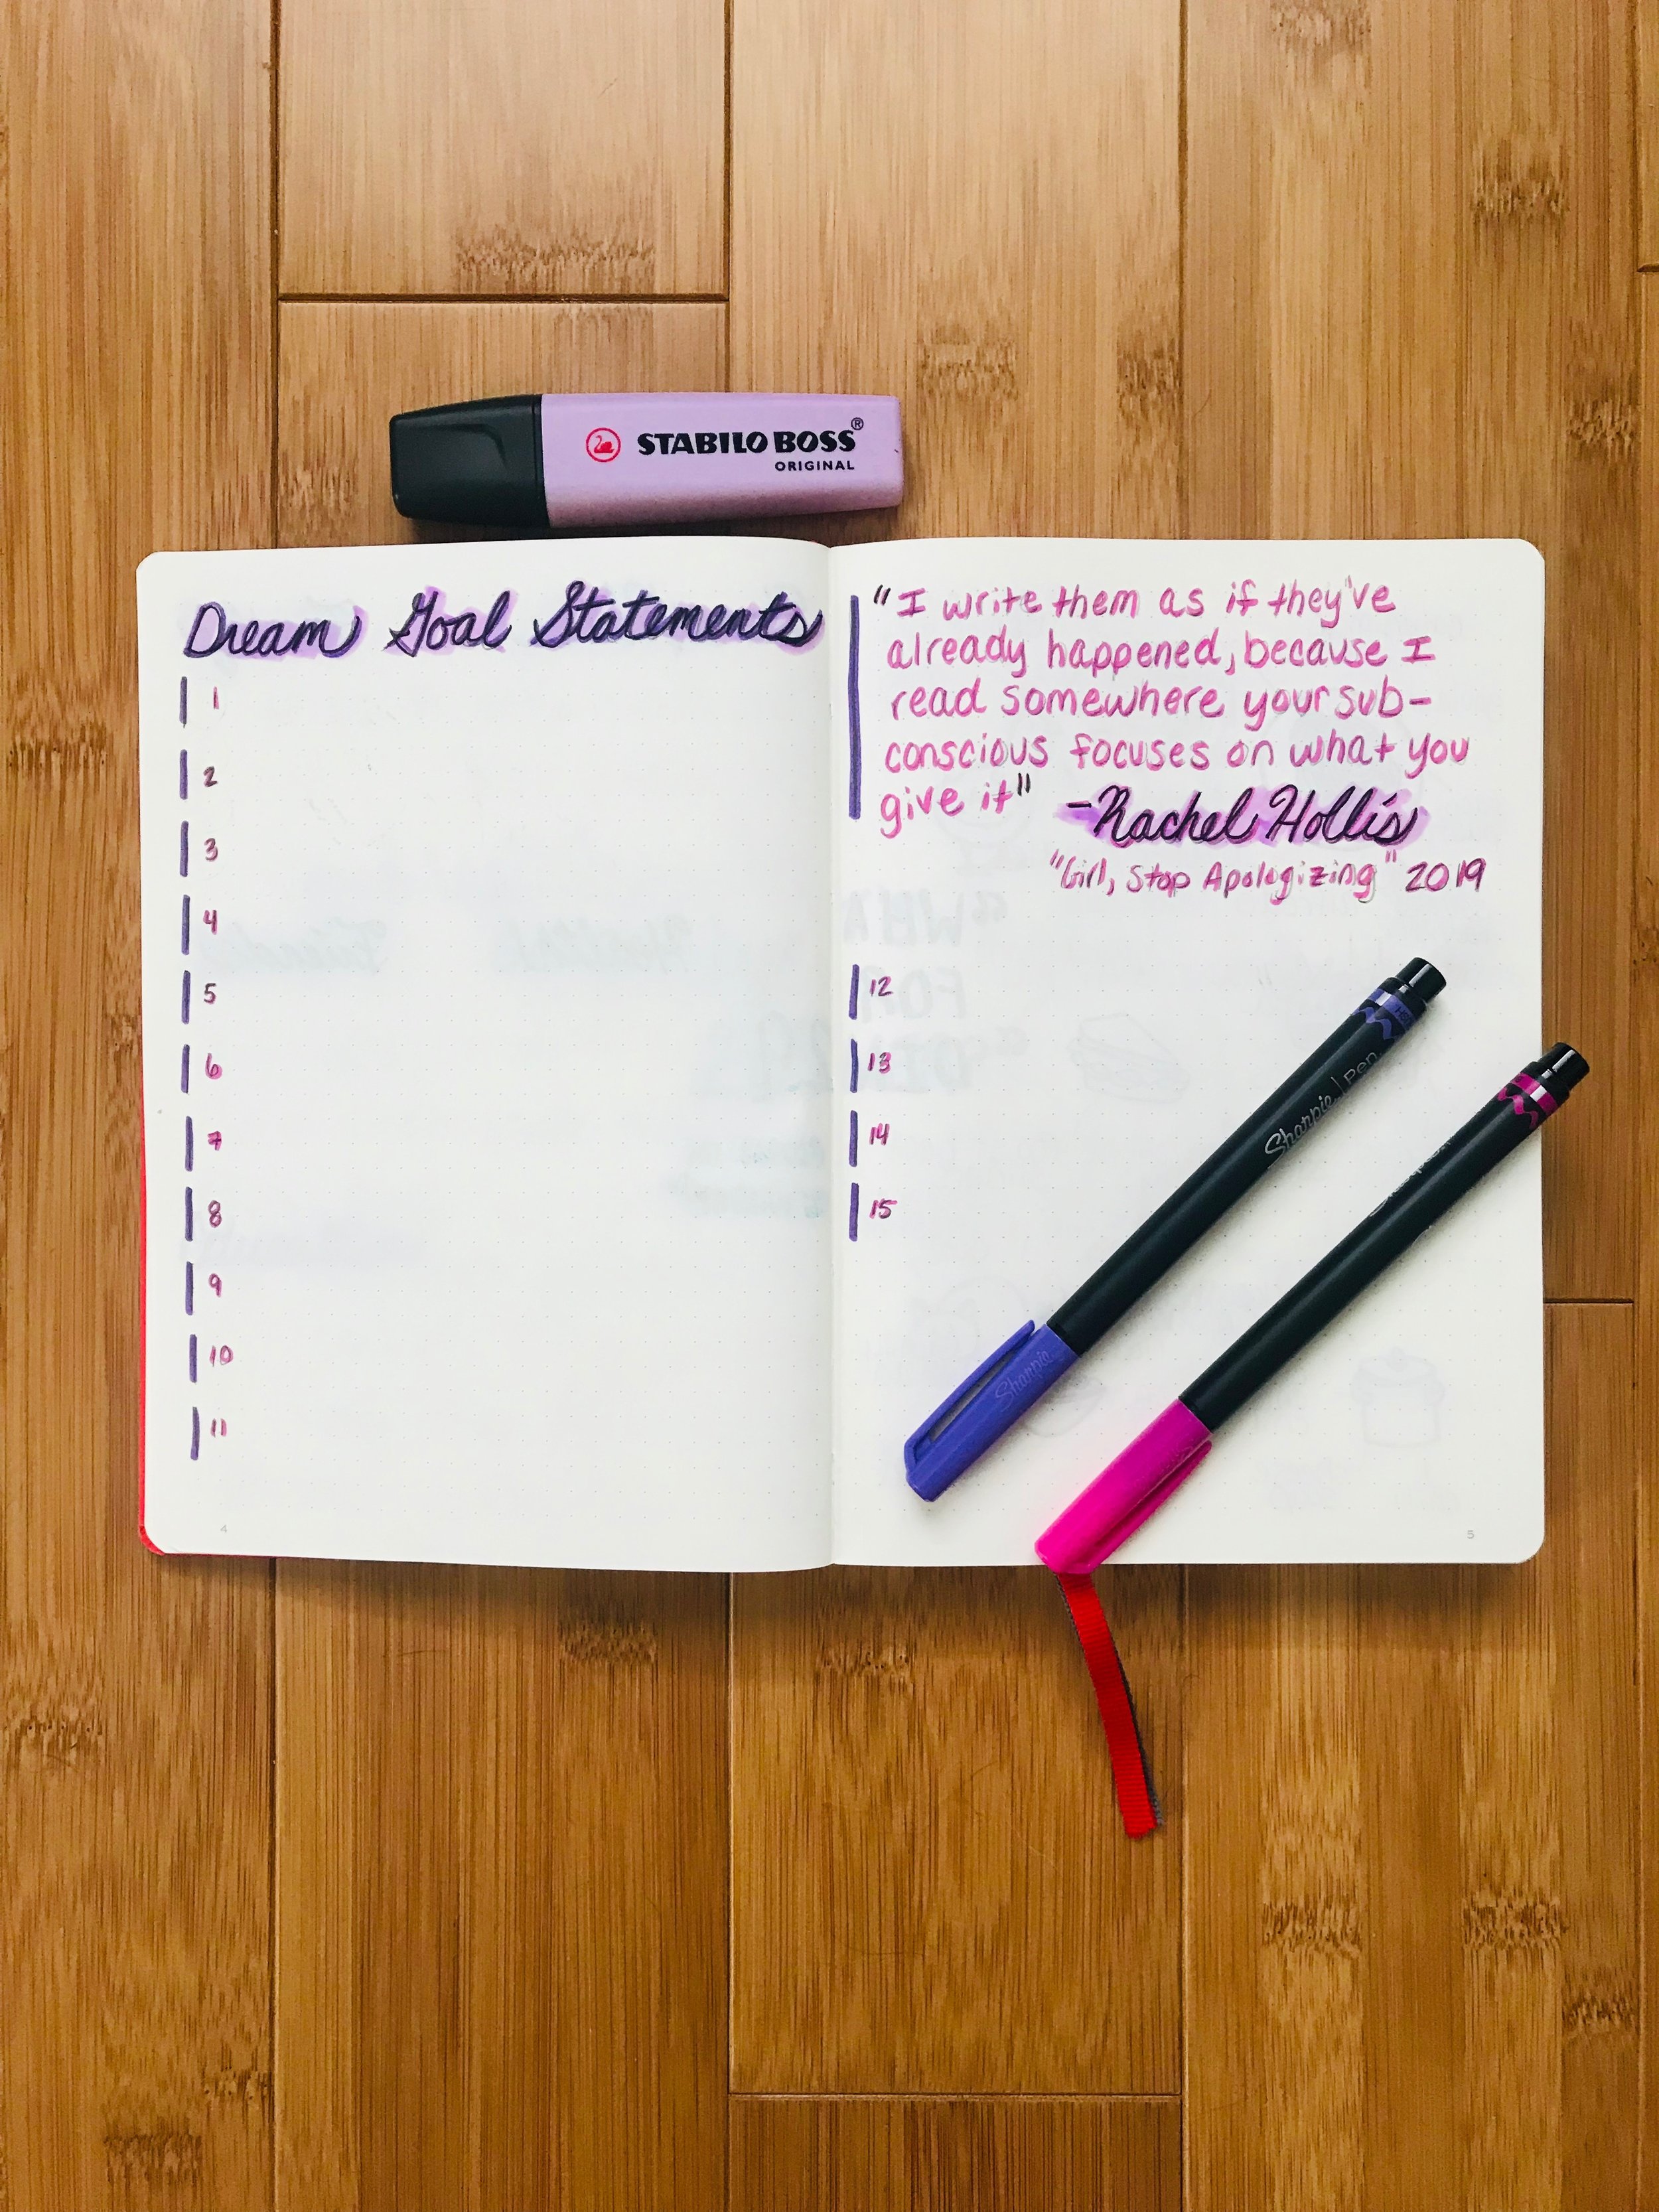 STABILO BOSS®
ORIGINAL
Dream Goal Statements
1
2
3
4
5
6
7
8
9
10
11
4
"I write them as if they've
already happened, because I
read somewhere your sub-
conscious focuses on what you
give it"
-Rachel Hollis
"Girl, Stop Apologizing" 2019
12
13
14
15
Sharpie Pen
Sharpie
5